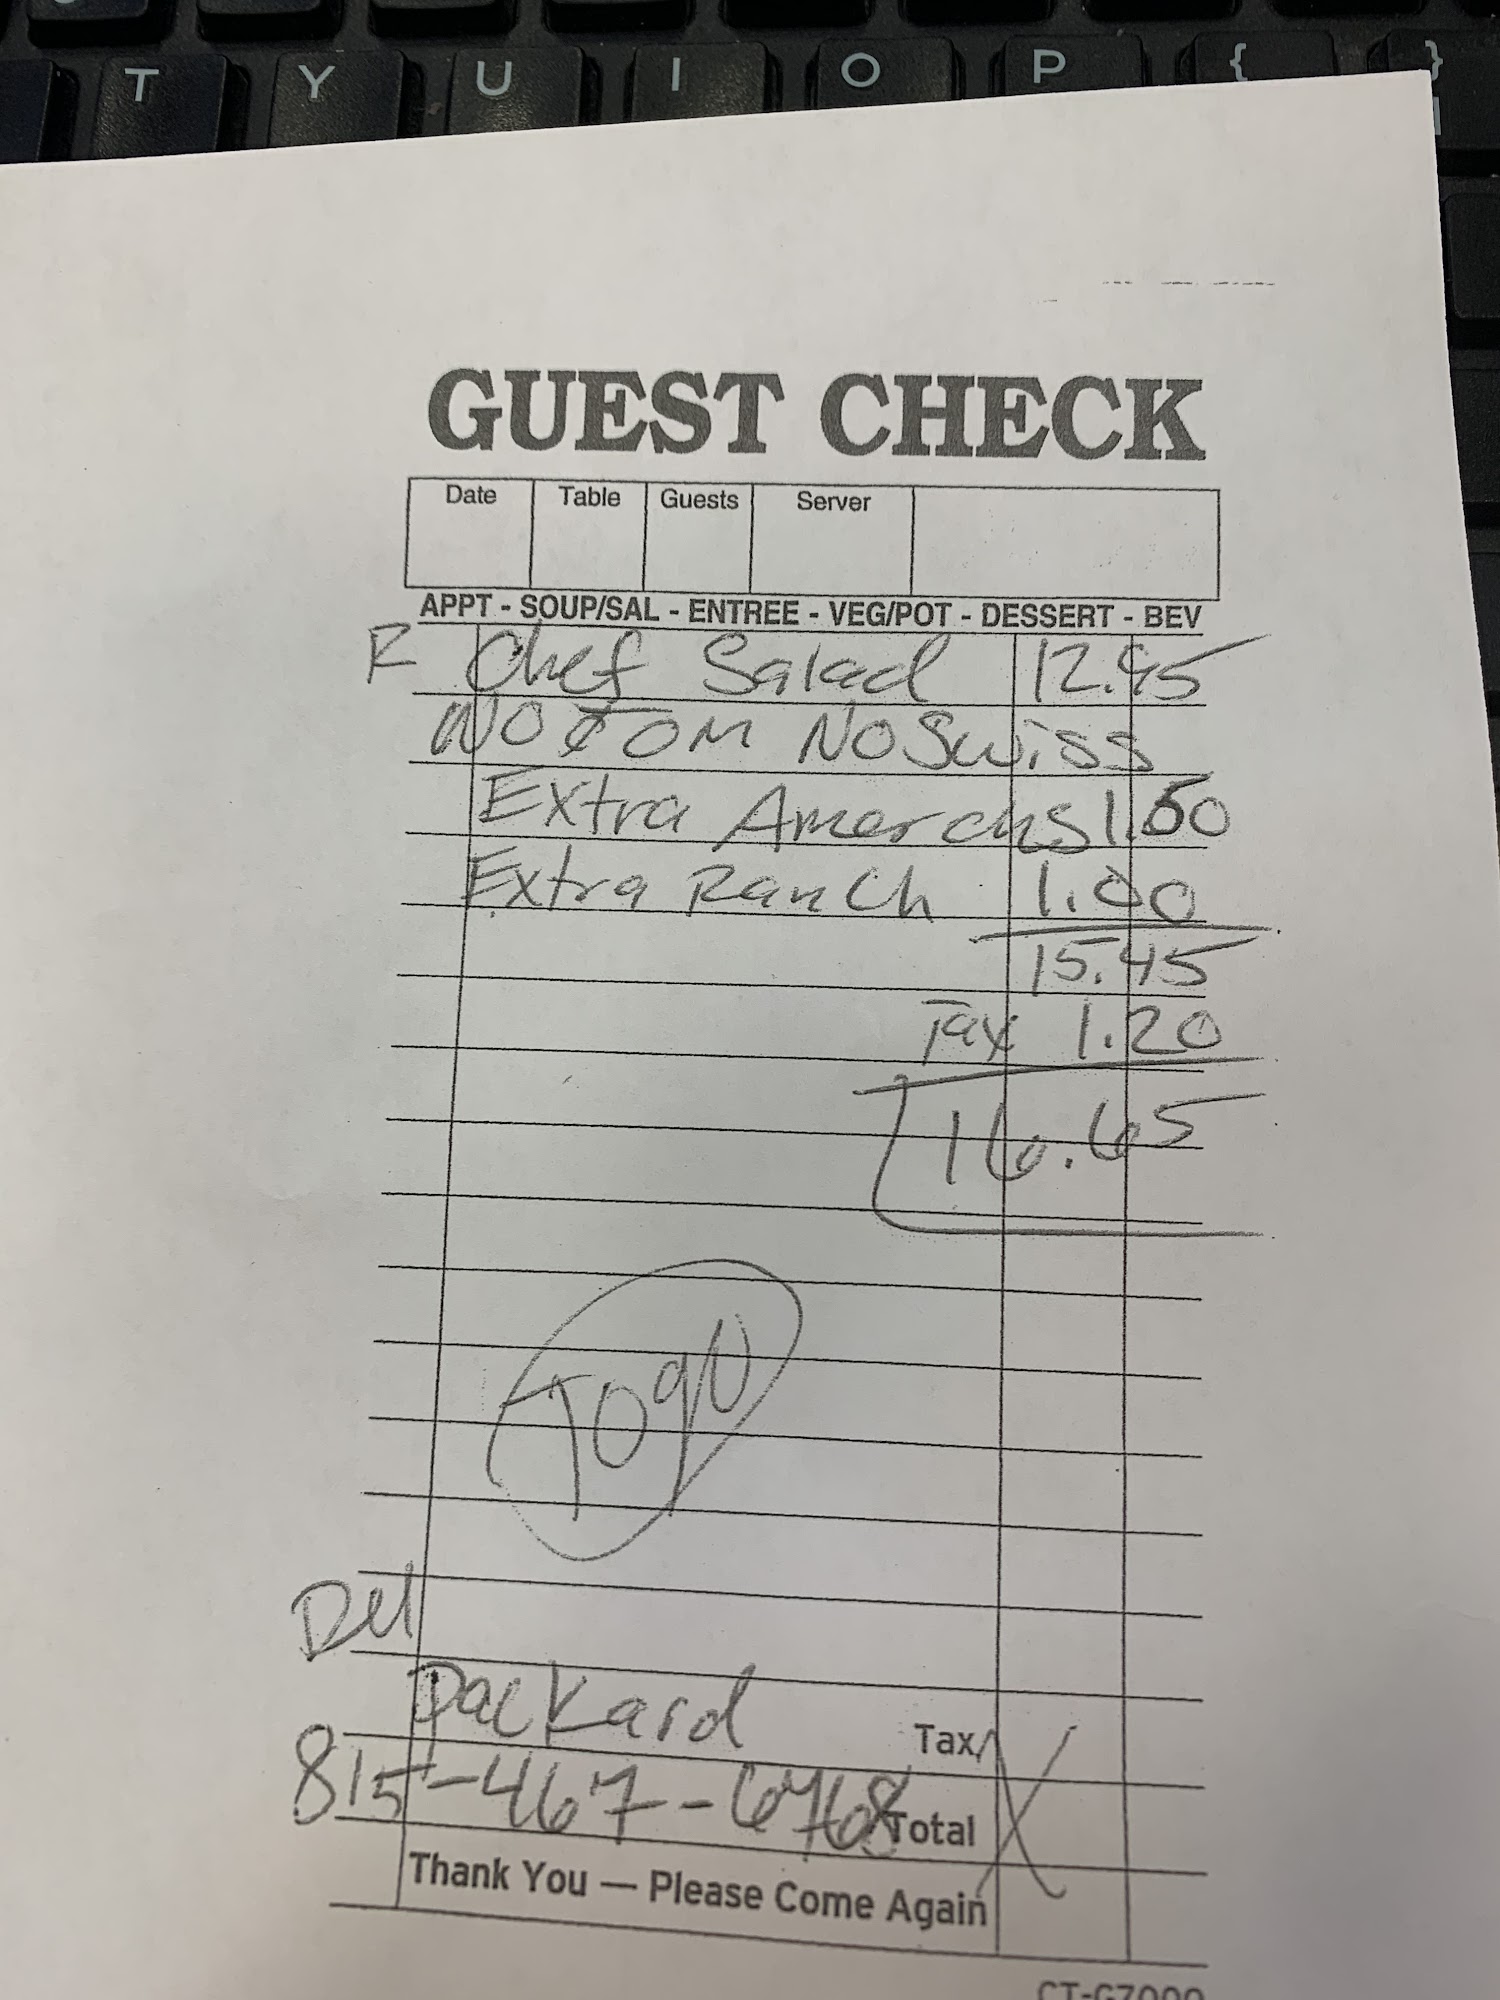 T Y U I O P { }
GUEST CHECK
Date Table Guests Server
APPT - SOUP/SAL - ENTREE - VEG/POT - DESSERT - BEV
R Chef Salad 12.95
NO TOM NO Swiss
Extra 1.50
Extra Ranch 1.00
15.45
Tax 1.20
16.65
TOgO
Del
Packard
Tax
815-467-6768
Total
Thank You — Please Come Again
CT-G7000